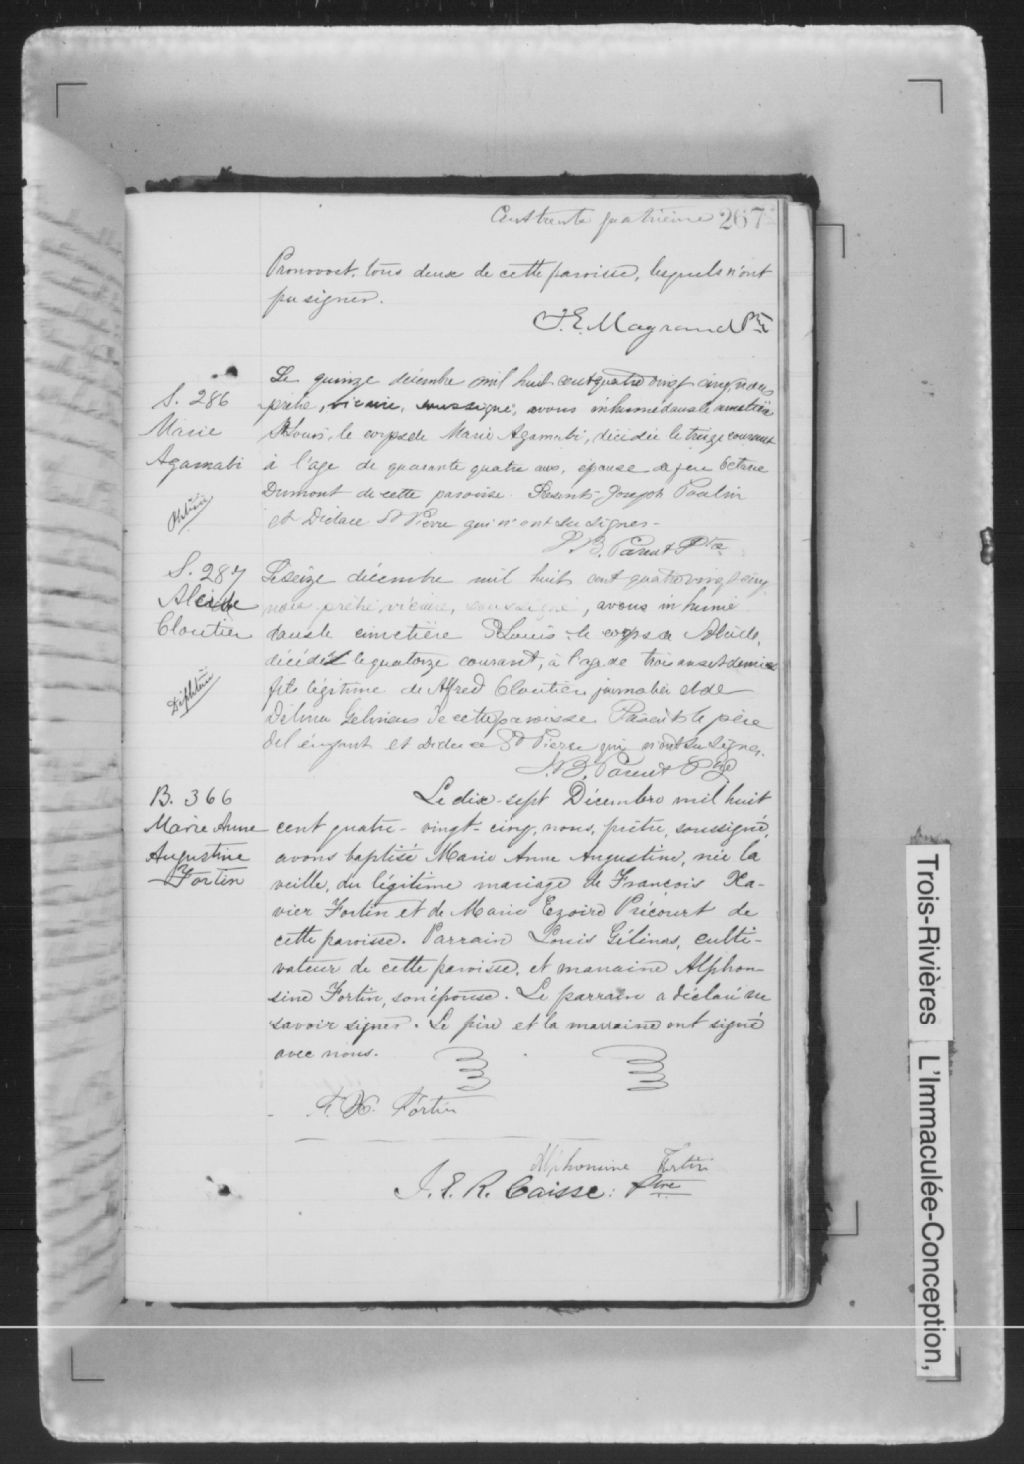 Cent trente quatrième 267
Pronovost, tous deux de cette paroisse, lesquels n'ont
pu signer.
J. E. Magrand Ptre
S. 286
Marie
Agamabi
Le quinze décembre mil huit cent quatre vingt cinq, nous
prêtre, vicaire, soussigné, avons inhumé dans le cimetière
St Louis, le corps de Marie Agamabi, décédée le treize courant
à l'age de quarante quatre ans, épouse de feu Octave
Dumont de cette paroisse. Présents Joseph Poulin
et Didace St Pierre qui n'ont su signer.
J. B. Parent Ptre
S. 287
Alcide
Cloutier
Diphtérie
Le seize décembre mil huit cent quatre vingt cinq
nous prêtre, vicaire, soussigné, avons inhumé
dans le cimetière St Louis le corps de Alcide,
décédé le quatorze courant, à l'age de trois ans et demi
fils légitime de Alfred Cloutier journalier et de
Délima Gelineau de cette paroisse. Présents le père
de l'enfant et Didace St Pierre qui n'ont su signer.
J. B. Parent Ptre
B. 366
Marie Anne
Augustine
Fortin
Le dix-sept Décembre mil huit
cent quatre-vingt-cinq, nous, prêtre, soussigné,
avons baptisé Marie Anne Augustine, née la
veille, du légitime mariage de François Xa-
vier Fortin et de Marie Ezoire Précourt de
cette paroisse. Parrain Louis Gélinas, culti-
vateur de cette paroisse, et marraine Alphon-
sine Fortin, son épouse. Le parrain a déclaré ne
savoir signer. Le père et la marraine ont signé
avec nous.
F. X. Fortin
Alphonsine Fortin
J. E. R. Caisse: Ptre
Trois-Rivières L'Immaculée-Conception,